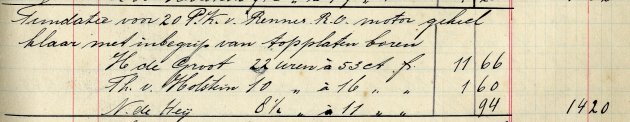 Fundatie voor 20 P.K. v. Rennes R.O. motor geheel
klaar met inbegrip van topplaten boren
H de Groot 22 uren à 53 ct f. 11 66
Th. v. Holstein 10 " à 16 " " 1 60
N. de Heij 8½ " à 11 " " 94 14 20